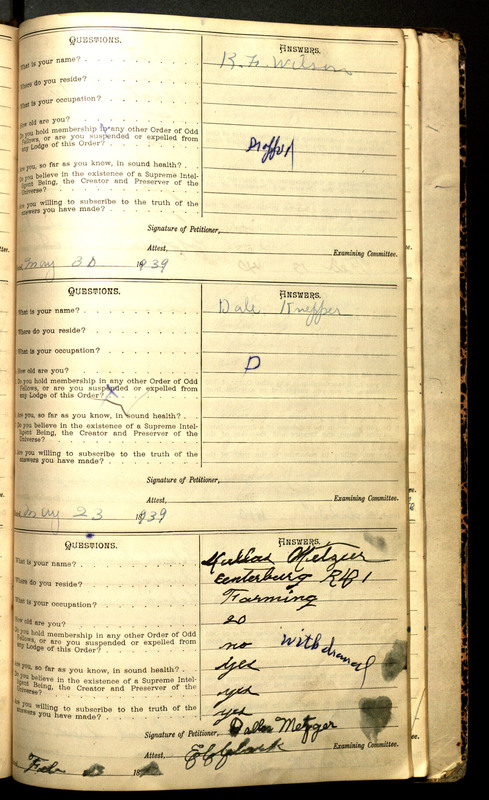 QUESTIONS.
ANSWERS.
What is your name?
Where do you reside?
What is your occupation?
How old are you?
Do you hold membership in any other Order of Odd
Fellows, or are you suspended or expelled from
any Lodge of this Order?
Are you, so far as you know, in sound health?
Do you believe in the existence of a Supreme Intel-
ligent Being, the Creator and Preserver of the
Universe?
Are you willing to subscribe to the truth of the
answers you have made?
Wilson
Signature of Petitioner,
Attest, Examining Committee.
May 30 1939
QUESTIONS.
ANSWERS.
What is your name? Dale Knepper
Where do you reside?
What is your occupation?
How old are you? D
Do you hold membership in any other Order of Odd
Fellows, or are you suspended or expelled from
any Lodge of this Order? X
Are you, so far as you know, in sound health?
Do you believe in the existence of a Supreme Intel-
ligent Being, the Creator and Preserver of the
Universe?
Are you willing to subscribe to the truth of the
answers you have made?
Signature of Petitioner,
Attest, Examining Committee.
23 1939
QUESTIONS.
ANSWERS.
What is your name? Metzger
Where do you reside? Centerburg RD 1
What is your occupation? Farming
How old are you? 20
Do you hold membership in any other Order of Odd
Fellows, or are you suspended or expelled from
any Lodge of this Order? no withdrawal
Are you, so far as you know, in sound health? yes
Do you believe in the existence of a Supreme Intel-
ligent Being, the Creator and Preserver of the
Universe? yes
Are you willing to subscribe to the truth of the
answers you have made? yes
Signature of Petitioner, Dallas Metzger
Attest, Examining Committee.
Feb 18